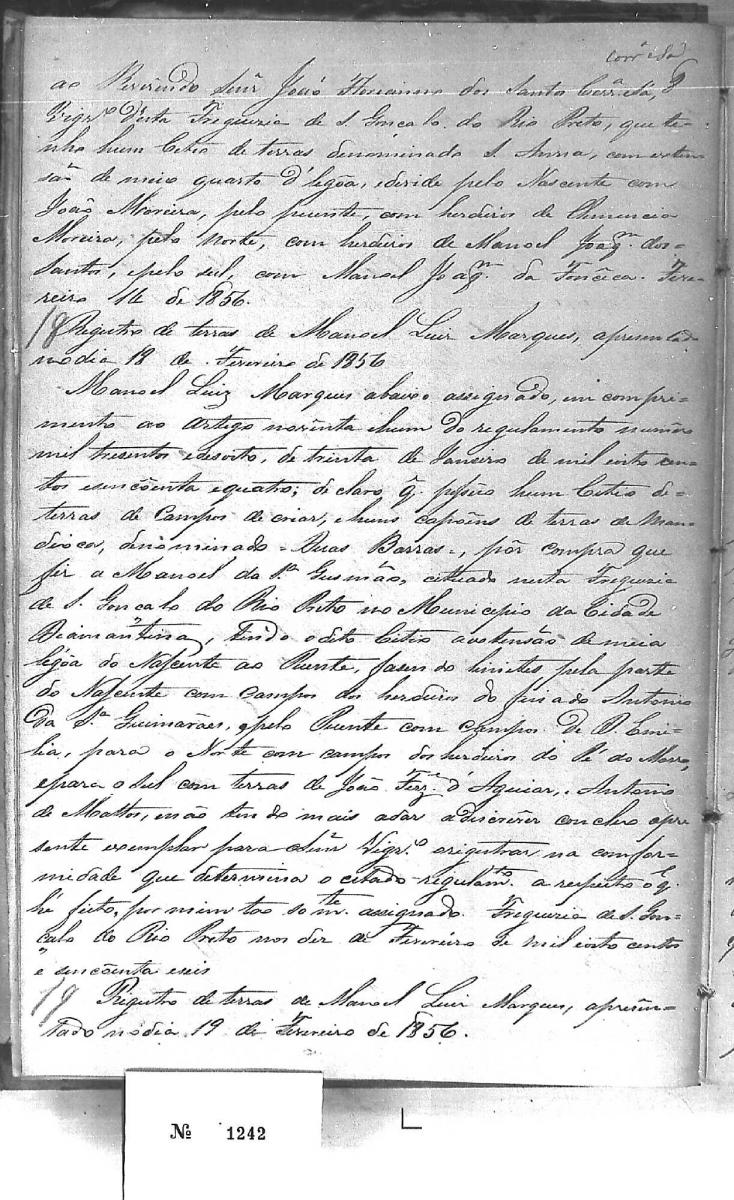 ao Reverendo Senr João Floriano dos Santos Corrêa Sá,
Vigrº desta Freguezia de S. Gonçalo do Rio Preto, que te-
nho hum Citio de terras denominado S. Anna, com exten
são de meio quarto d'legôa, edevide pelo Nascente com
João Moreira, pelo puente, com herdeiros de
Moreira, pelo Norte, com herdeiros de Manoel Joaqm. dos
Santos, epelo sul, com Manoel Joaqm. da Foncêca. Feve-
reiro 16 de 1856.
18 Registro de terras de Manoel Luiz Marques, apresentado
no dia 18 de Fevereiro de 1856
Manoel Luiz Marques abaixo assignado, em compri-
mento ao Artigo noventa ehum do regulamento numero
mil tresentos edesoito, de trinta de Janeiro de mil oito cen-
tos esencoenta equatro; declaro q. pussuo hum Citio de
terras de Campos de criar, ehuns capoens de terras de Man
dioca, denominado = Duas Barras =, pôr compra que
fiz a Manoel da Sª Gusmão, cituado nesta Freguezia
de S. Gonçalo do Rio Preto no Municipio da Cidade
Diamantina, tendo odito Citio a extensão de meia
legôa do Nascente ao Puente, fasendo limites pela parte
do Nascente com Campos dos herdeiros do finado Antonio
da Sª Guimarães, epelo Puente com campos de D. Emi-
lia, para o Norte com campos dos herdeiros do Pé do Morro,
epara o sul com terras de João Ferz. d'Aguiar, Antonio
de Mattos, enão tendo mais adar adiscrever concluo opre
sente exemplar para oSenr Vigrº oregistrar na confor-
midade que determina o citado regulamto. a respeito o q.
hé feito, por mim tão sómte. assignado. Freguezia de S. Gon-
çalo do Rio Preto aos dez de Fevereiro de mil oito centos
e sencoenta eseis
19 Registro de terras de Manoel Luiz Marques, apresen-
tado nodia 19 de Fevereiro de 1856.
№ 1242